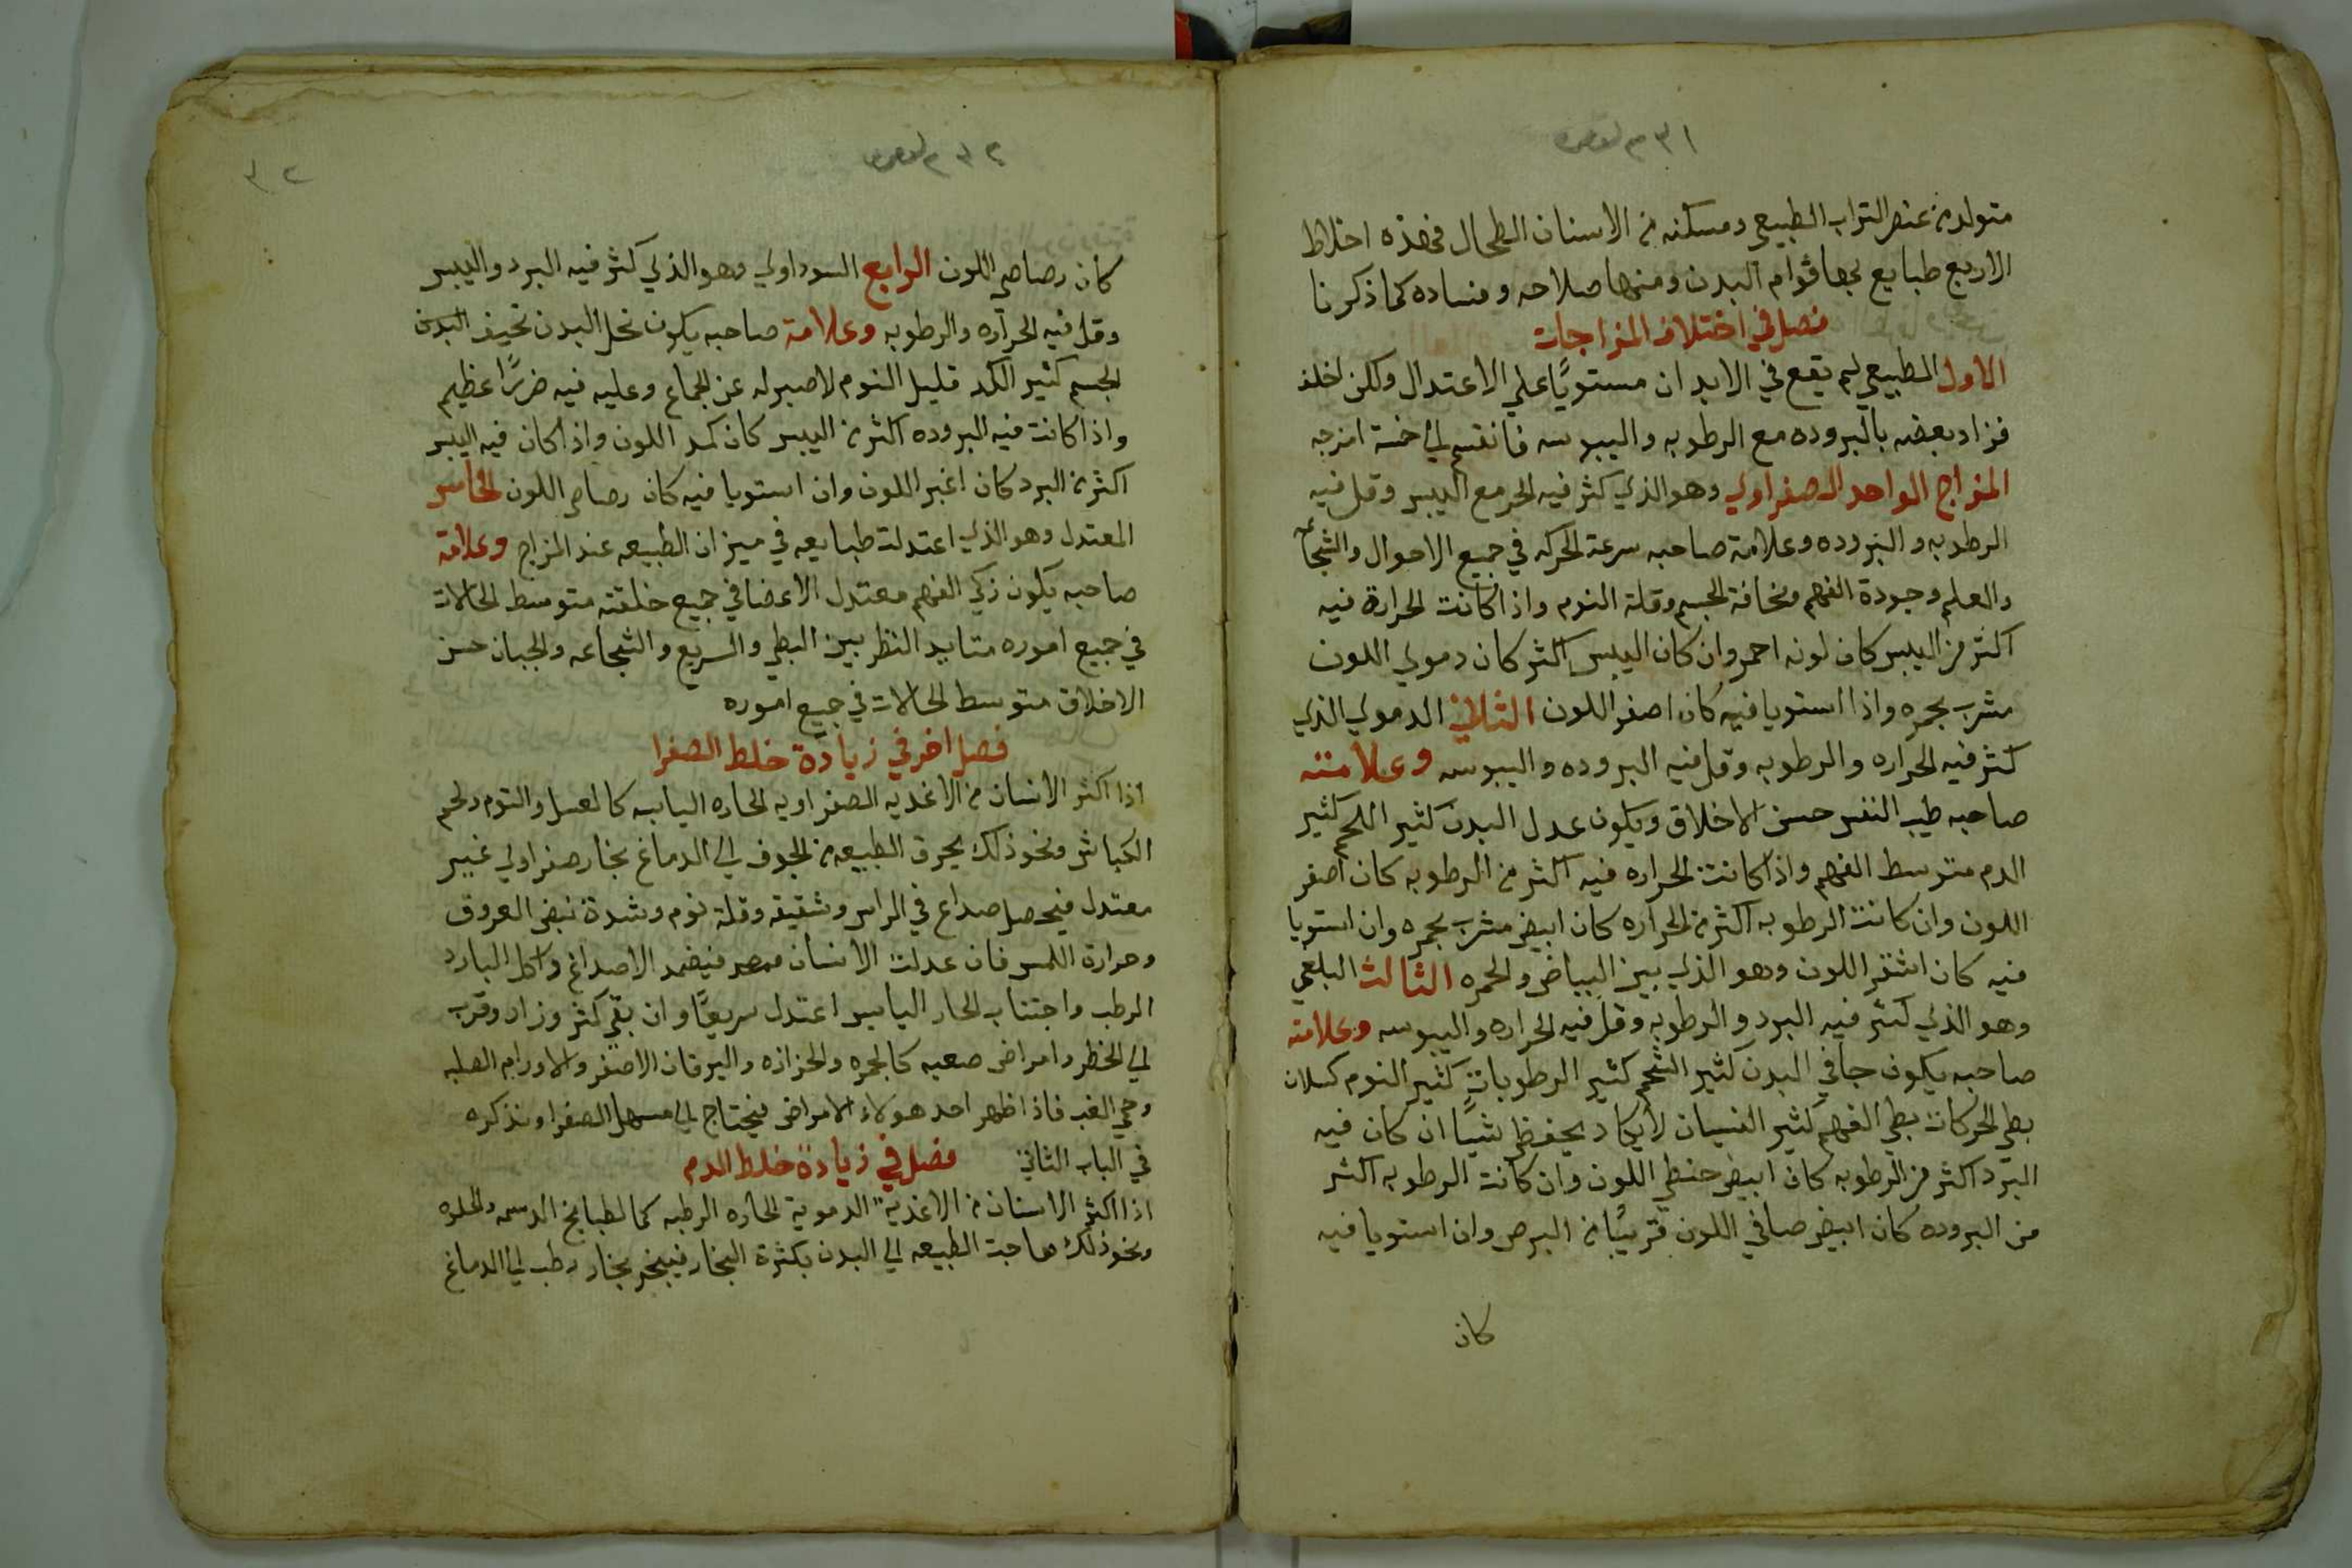 متولد من عنصر التراب الطبيعي ومسكنه من الانسان الطحال فهذه اخلاط
الاربع طبايع بها قوام البدن ومنها صلاحه وفساده كما ذكرنا
فصل في اختلاف المزاجات
الاول الطبيعي لم يقع في الابدان مستويًا علي الاعتدال ولكن اختلف
فزاد بعضه بالبروده مع الرطوبه واليبوسه فانقسم الي خمسة امزجه
المزاج الواحد الصفراوي وهو الذي كثر فيه الحر مع اليبس وقل فيه
الرطوبه والبروده وعلامة صاحبه سرعة الحركه في جميع الاحوال والشجاعه
والعلم وجودة الفهم ونحافة الجسم وقلة النوم واذا كانت الحرارة فيه
اكثر من اليبس كان لونه احمر وان كان اليبس اكثر كان دموي اللون
مشرب بحمره واذا استويا فيه كان اصفر اللون الثاني الدموي الذي
كثر فيه الحراره والرطوبه وقل فيه البروده واليبوسه وعلامته
صاحبه طيب النفس حسن الاخلاق ويكون عدل البدن كثير اللحم كثير
الدم متوسط الفهم واذا كانت الحراره فيه اكثر من الرطوبه كان اصفر
اللون وان كانت الرطوبه اكثر من الحراره كان ابيض مشرب بحمره وان استويا
فيه كان اشقر اللون وهو الذي بين البياض والحمره الثالث البلغمي
وهو الذي كثر فيه البرد والرطوبه وقل فيه الحراره واليبوسه وعلامة
صاحبه يكون جافي البدن كثير الشحم كثير الرطوبات كثير النوم كسلان
بطي الحركات بطي الفهم كثير النسيان لا يكاد يحفظ شيًا ان كان فيه
البرد اكثر من الرطوبه كان ابيض حنطي اللون وان كانت الرطوبه اكثر
من البروده كان ابيض صافي اللون قريبًا من البرص وان استويا فيه
كان
كان رصاصي اللون الرابع السوداوي وهو الذي كثر فيه البرد واليبس
وقل فيه الحراره والرطوبه وعلامة صاحبه يكون نحل البدن نحيف البدن
الجسم كثير الكد قليل النوم لا صبر له عن الجماع وعليه فيه ضررًا عظيم
واذا كانت فيه البروده اكثر من اليبس كان كمد اللون واذا كان فيه اليبس
اكثر من البرد كان اغبر اللون وان استويا فيه كان رصاصي اللون الخامس
المعتدل وهو الذي اعتدلت طبايعه في ميزان الطبيعه عند المزاج وعلامة
صاحبه يكون زكي الفهم معتدل الاعضا في جميع خلقته متوسط الحالات
في جميع اموره متايد النظر بين البطي والسريع والشجاعه والجبان حسن
الاخلاق متوسط الحالات في جميع اموره
فصل اخر في زيادة خلط الصفرا
اذا اكثر الانسان من الاغديه الصفراويه الحاره اليابسه كالعسل والتوم ولحم
الكباش ونحو ذلك يحرق الطبيعه من الجوف الي الدماغ بخار صفراوي غير
معتدل فيحصل صداع في الراس وشقيقه وقلة نوم وشدة نبض العروق
وحرارة اللمس فان عدلت الانسان فيضمد الاصداغ واكل البارد
الرطب واجتناب الحار اليابس اعتدل سريعًا وان بقي كثر وزاد وقرب
الي الخطر وامراض صعبه كالحمره والحزازه واليرقان الاصفر والاورام الصلبه
وحمي الغب فاذا ظهر احد هولاء الامراض فيحتاج الي مسهل الصفرا ونذكره
في الباب الثاني فصل في زيادة خلط الدم
اذا اكثر الانسان من الاغدية الدموية الحاره الرطبه كالطبايخ الدسمه والحلوه
ونحو ذلك هاجت الطبيعه الي البدن بكثرة البخار فيبخر بخار رطب الي الدماغ